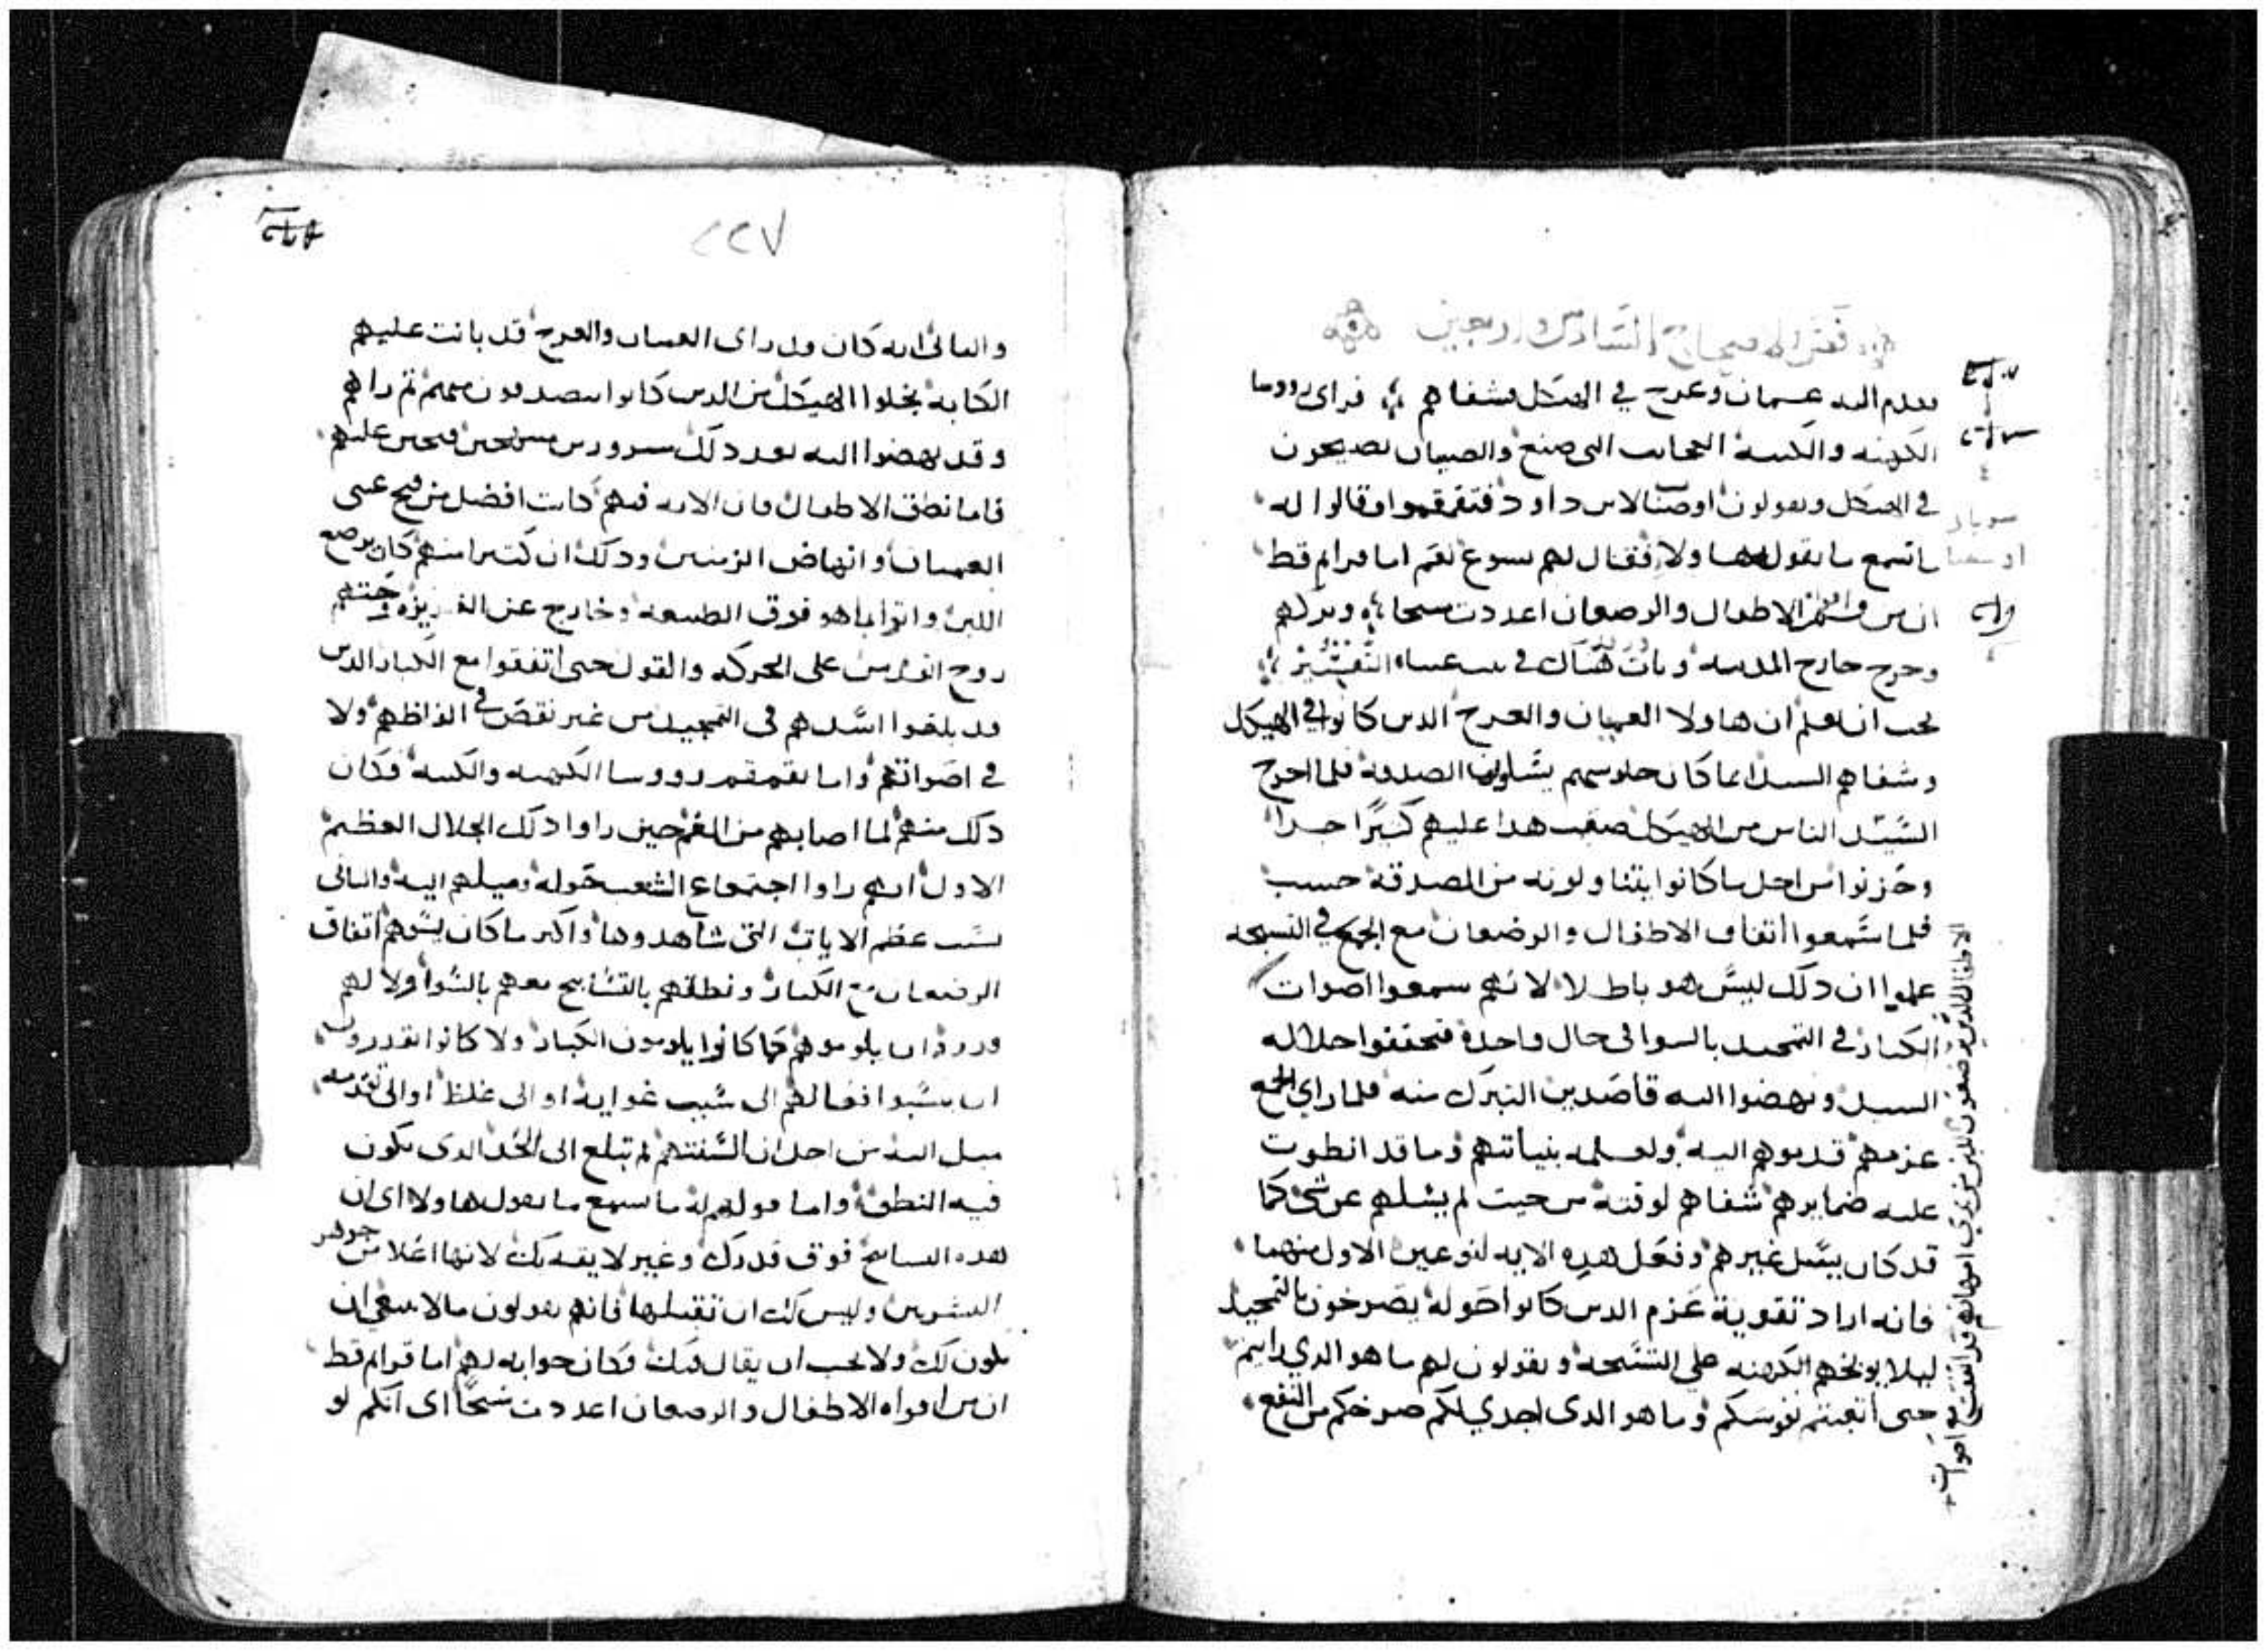 فص الاصحاح السادس واربعين
تقدم اليه عميان وعرج في الهيكل فشفاهم فراى رووسا
الكهنه والكتبه العجايب التى صنع والصبيان يصيحون
في الهيكل ويقولون اوصنا لابن داود فتقمقموا وقالوا له
ما تسمع ما يقول هاولا فقال لهم يسوع نعم اما قراتم قط
ان من افواه الاطفال والرضعان اعددت سبحا وتركهم
وخرج خارج المدينه وبات هناك في بيت عنيا التفسير
يجب ان نعلم ان هاولا العميان والعرج الدين كانوا في الهيكل
وشفاهم السيد انما كان جلوسهم يسلون الصدقة فلما اخرج
السيد الناس من الهيكل صعب هدا عليهم كثيرا جدا
وحزنوا من اجل ما كانوا يتناولونه من الصدقة حسب
فلما سمعوا اتفاق الاطفال والرضعان مع الجمع في التسبحه
علموا ان دلك ليس هو باطلا لانهم سمعوا اصوات
الاطفال الدين يرضعون اللبن من تدي امهاتهم قد اتفقت مع اصوات
الكبار في التمجيد بالسوا في حال واحدة فتحققوا جلاله
السيد ونهضوا اليه قاصدين التبرك منه فلما راي الجمع
عزمهم قدموهم اليه ولعلمه بنياتهم وما قد انطوت
عليه ضمايرهم شفاهم لوقته من حيت لم يسلهم عن شي كما
قد كان يسل غيرهم وفعل هده الايه لنوعين الاول منهما
فانه اراد تقوية عزم الدين كانوا حوله يصرخون بالتمجيد
ليلا يوبخهم الكهنه على التسبحه ويقولون لهم ما هو الدي رايتم
حتى اتعبتم نفوسكم وما هو الدى اجدي لكم صرخكم من النفع
٢٢٧
والتانى انه كان قد راى العميان والعرج قد بانت عليهم
الكابه بخلوا الهيكل من الدين كانوا يتصدقون عليهم تم راهم
وقد نهضوا اليه بعد دلك مسرورين فتحنن عليهم
فاما نطق الاطفال فان الايه فيهم كانت افضل من فتح عيني
العميان وانهاض الزمنين ودلك ان كتيرا منهم كان يرضع
اللبن واتوا بما هو فوق الطبيعه وخارج عن الغريزه وحتهم
روح القدس على الحركه والقول حتى اتفقوا مع الكبار الدين
قد بلغوا اشدهم في التمجيد من غير نقص في الفاظهم ولا
في اصواتهم واما تقمقم رووسا الكهنه والكتبه فكان
دلك منهم لما اصابهم من الغم حين راوا دلك الجلال العظيم
الاول انهم راوا اجتماع الشعب حوله وميلهم اليه والتانى
بسبب عظم الايات التى شاهدوها واكبر ما كان يسوهم اتفاق
الرضعان مع الكبار ونطقهم بالتسابيح معهم بالسوا ولا لهم
ان يلوموهم كما كانوا يلومون الكبار ولا كانوا يقدروا
ان ينسبوا افعالهم الى سبب غوايه او الى غلظ او الى
ميل اليه من اجل ان السنتهم لم تبلغ الى الحد الدى يكون
فيه النطق واما قولهم له ما تسمع ما يقول هاولا اى ان
هده التسابيح فوق قدرك وغير لايقه بك لانها اعلا من جوهر
البشرين وليس لك ان تقبلها فانهم يقولون ما لا ينبغي ان
يكون لك ولا يجب ان يقال فيك فكان جوابه لهم اما قراتم قط
ان من افواه الاطفال والرضعان اعددت سبحا اى انكم لو